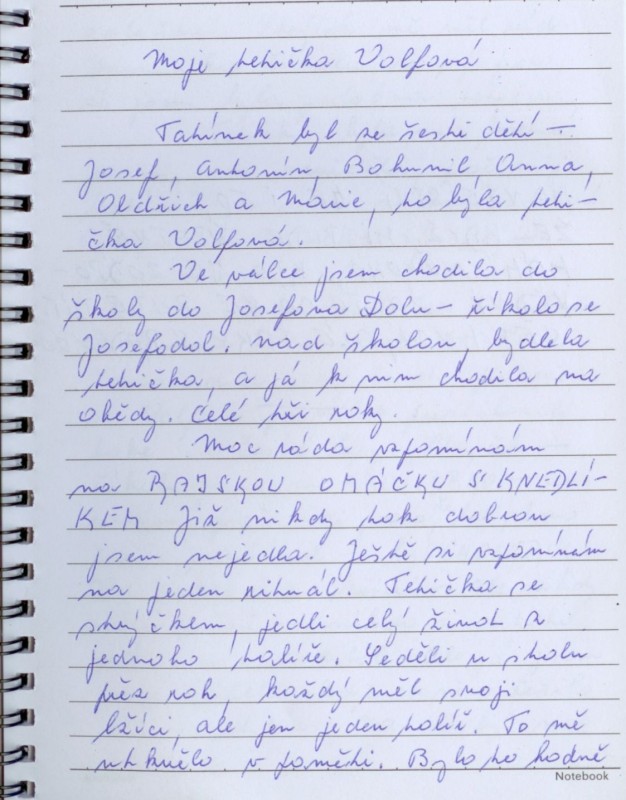 Moje tetička Volfová
Tatínek byl ze šesti dětí –
Josef, Antonín, Bohumil, Anna,
Oldřich a Marie, to byla teti–
čka Volfová.
Ve válce jsem chodila do
školy do Josefova Dolu – říkalo se
Josefodol. Nad školou, bydlela
tetička, a já k nim chodila na
obědy. Celé tři roky.
Moc ráda vzpomínám
na RAJSKOU OMÁČKU S KNEDLÍ–
KEM Již nikdy tak dobrou
jsem nejedla. Ještě si vzpomínám
na jeden rituál. Tetička se
strýčkem, jedli celý život z
jednoho talíře. Seděli u stolu
přez roh, každý měl svoji
lžíci, ale jen jeden talíř. To mě
utkvělo v paměti. Bylo ho hodně
Notebook